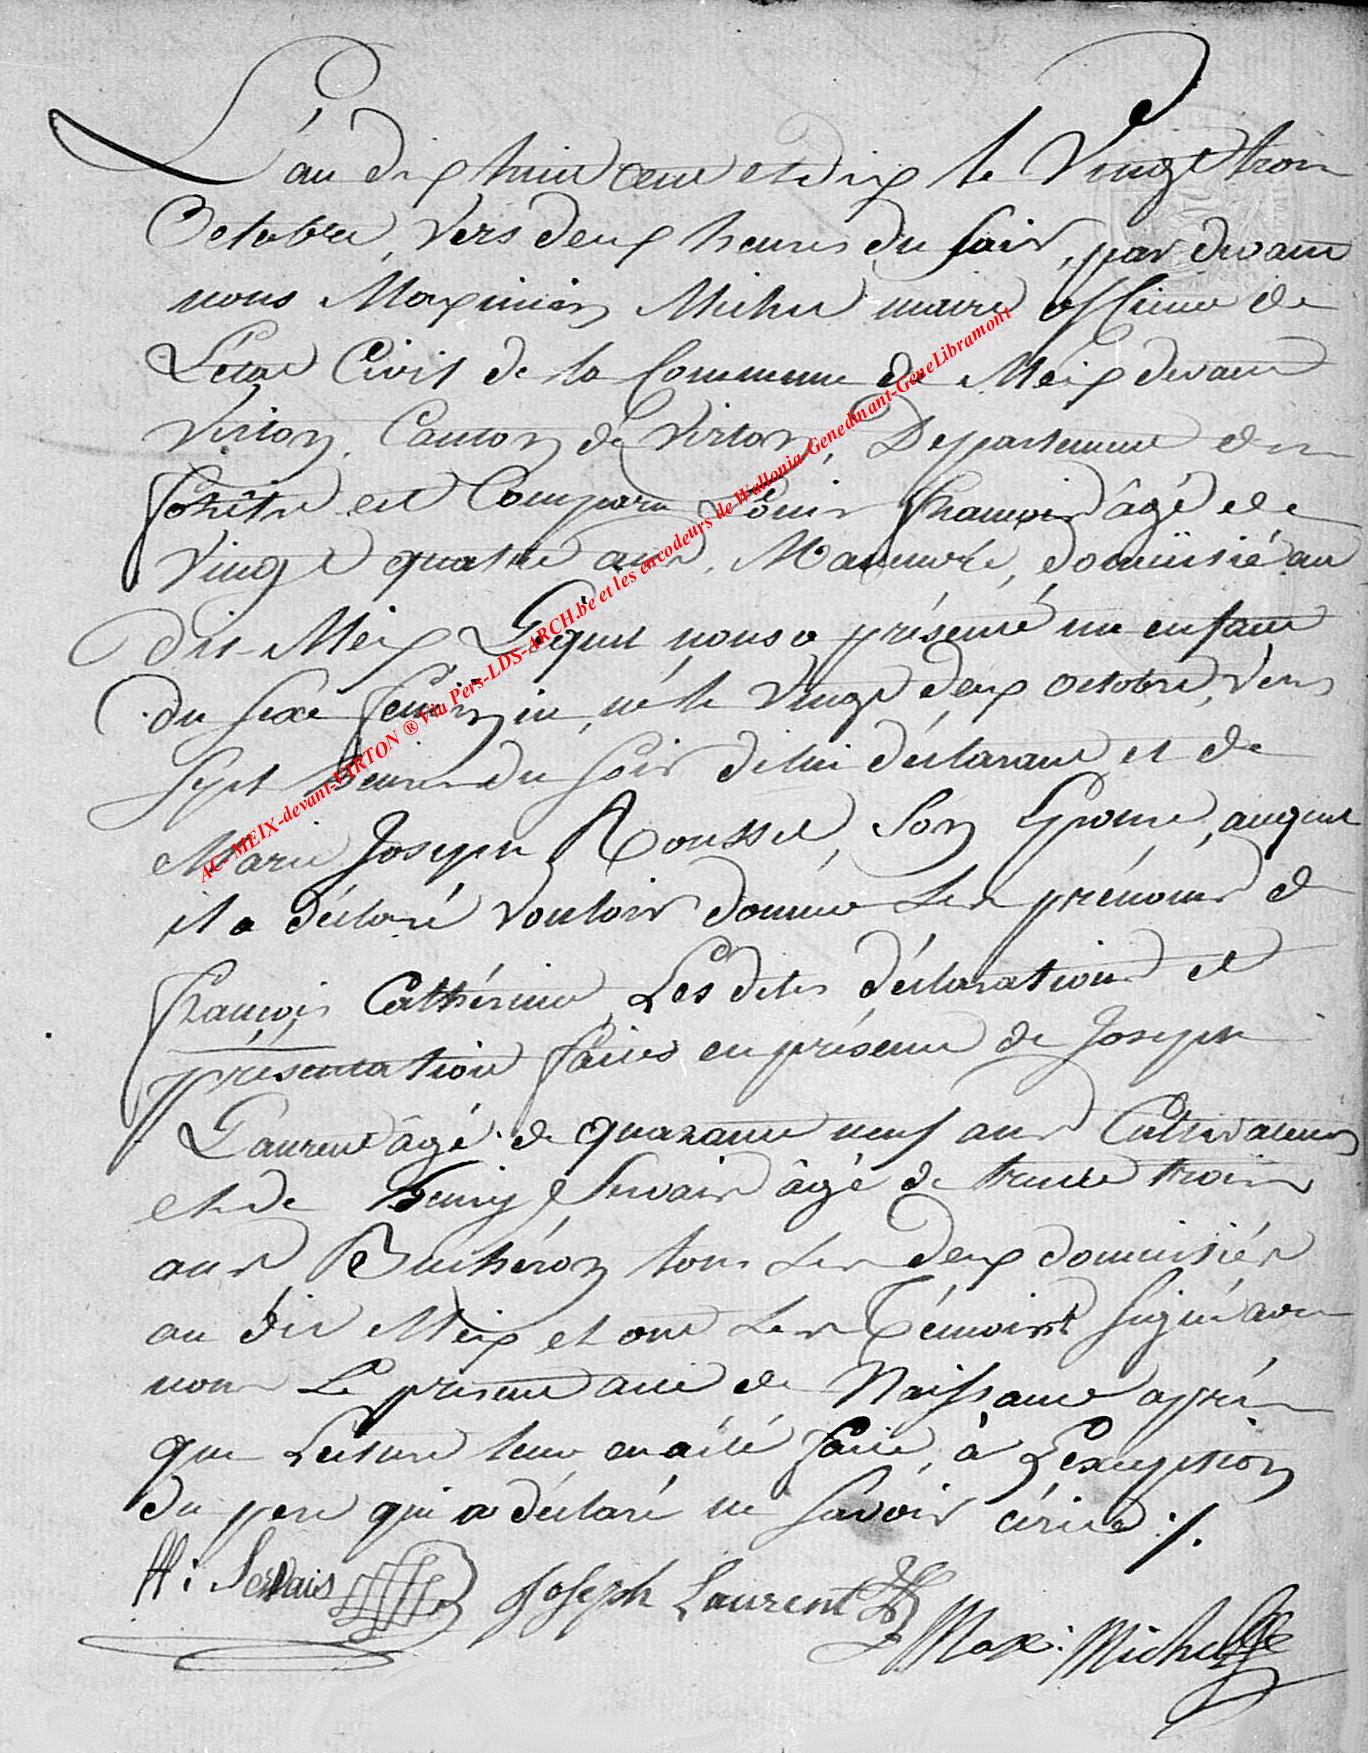 L'an dix huit cent et dix le Vingt trois
Octobre, vers deux heures du soir, par devant
nous Maximien Michel maire officier de
L'état Civil de la Commune de Meix devant
Virton, Canton de Virton, Departement des
forêts est Comparu Louis François âgé de
Vingt quatre ans, Manœuvre, domicilié au
dit Meix Lequel nous a présenté un enfant
du sexe feminin, né le Vingt deux octobre, vers
sept heures du soir de lui déclarant et de
Marie Joseph Roussel, son Epouse, auquel
il a déclaré vouloir donner les prénoms de
François Cathérine, Les dites déclaration et
présentation faites en présence de Joseph
Laurent âgé de quarante neuf ans Cultivateur
et de Henry Servais âgé de trente trois
ans Buchéron tous les deux domiciliés
au dit Meix et ont les Témoins signé avec
nous Le présent acte de Naissance après
que Lecture leur en a été faite, à L'exception
du pere qui a déclaré ne savoir écrire ./.
H: Servais Joseph Laurent Max: Michel
AC- MEIX-devant-VIRTON ® Viu Pers-LDS-ARCH.be et les encodeurs de Wallonia-Genedinant-GeneLibramont